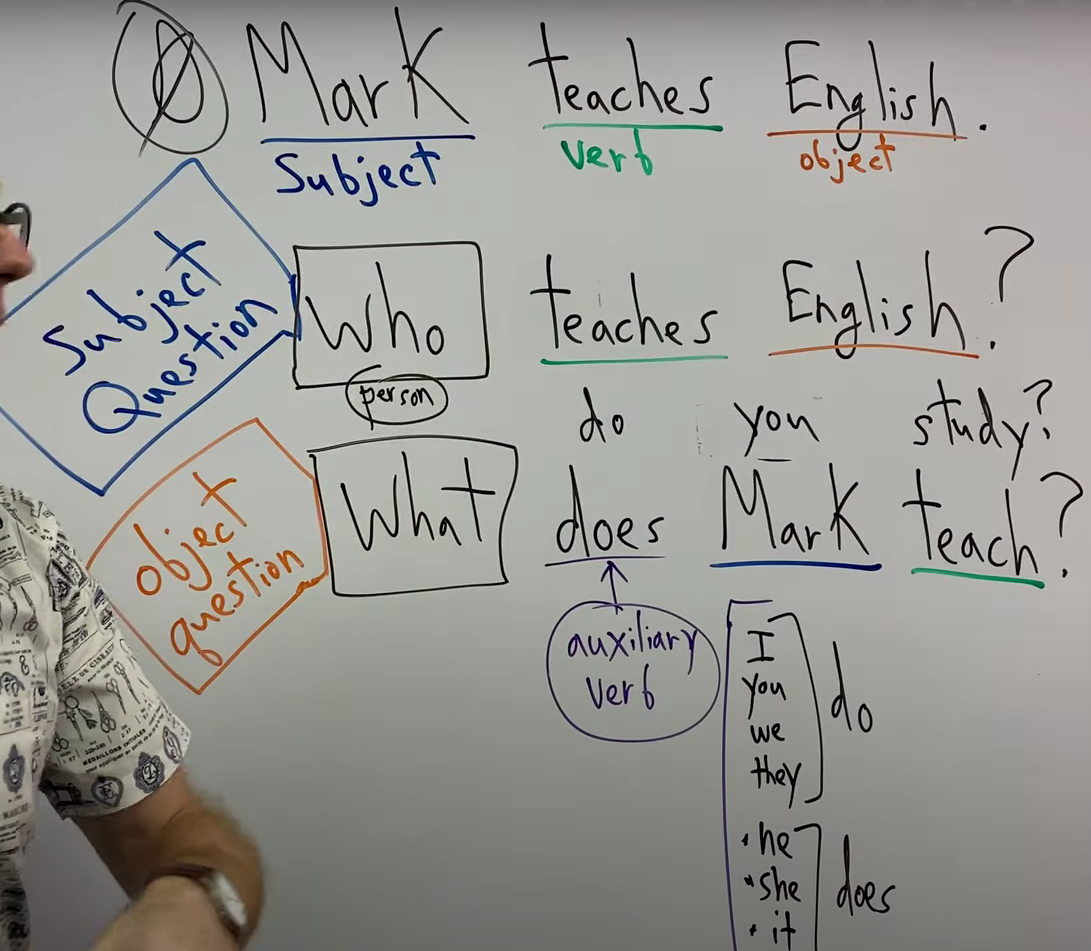 Mark teaches English.
Subject verb object
Subject
Question
Who teaches English?
person
do you study?
object
question
What does Mark teach?
auxiliary
verb
I
you
we
they
do
• he
• she
• it
does